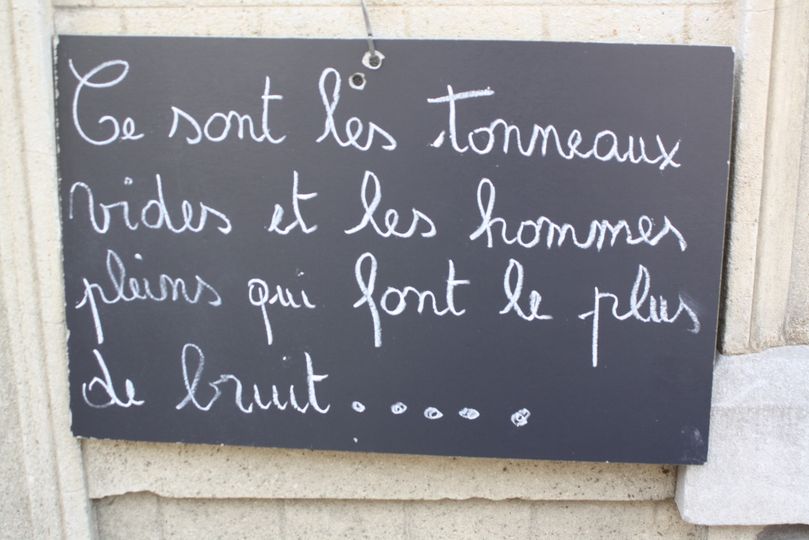 Ce sont les tonneaux
vides et les hommes
pleins qui font le plus
de bruit.....